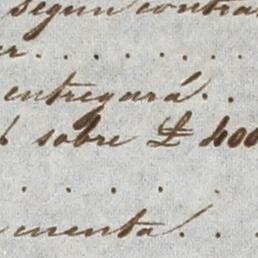 segun contra
r . . . . . . . .
entregará . .
sobre £ 400
. . . . .
menta . . .